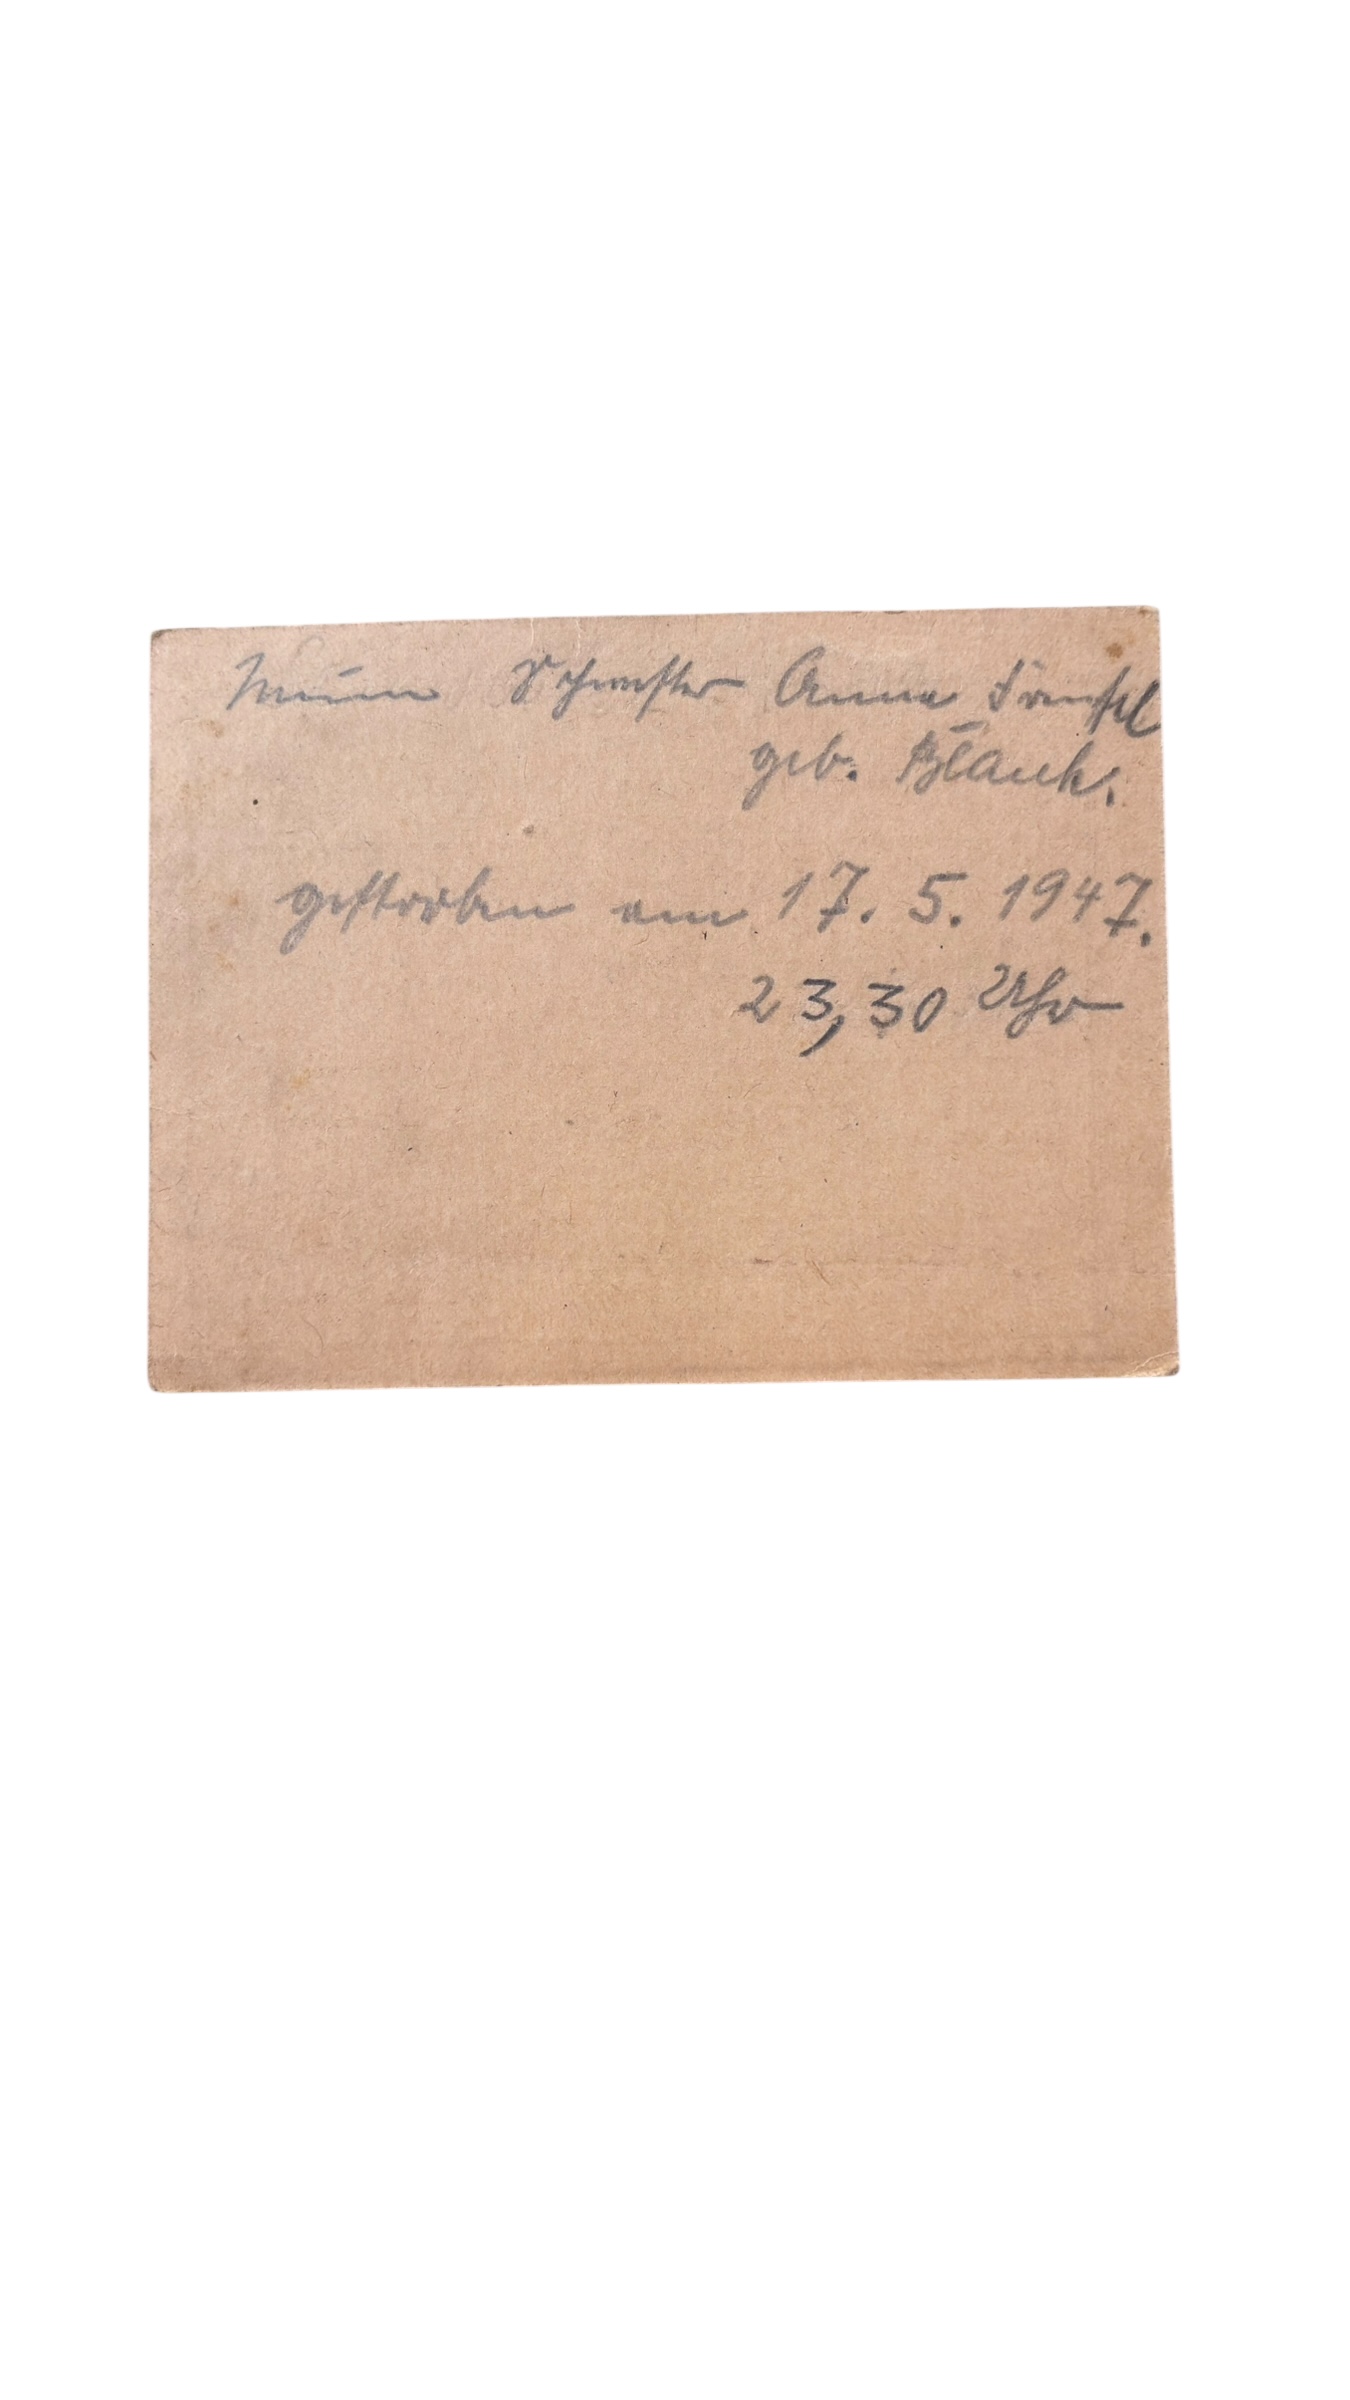 Meine Schwester Anna
geb. Blank.
gestorben am 17. 5. 1947.
23,30 Uhr